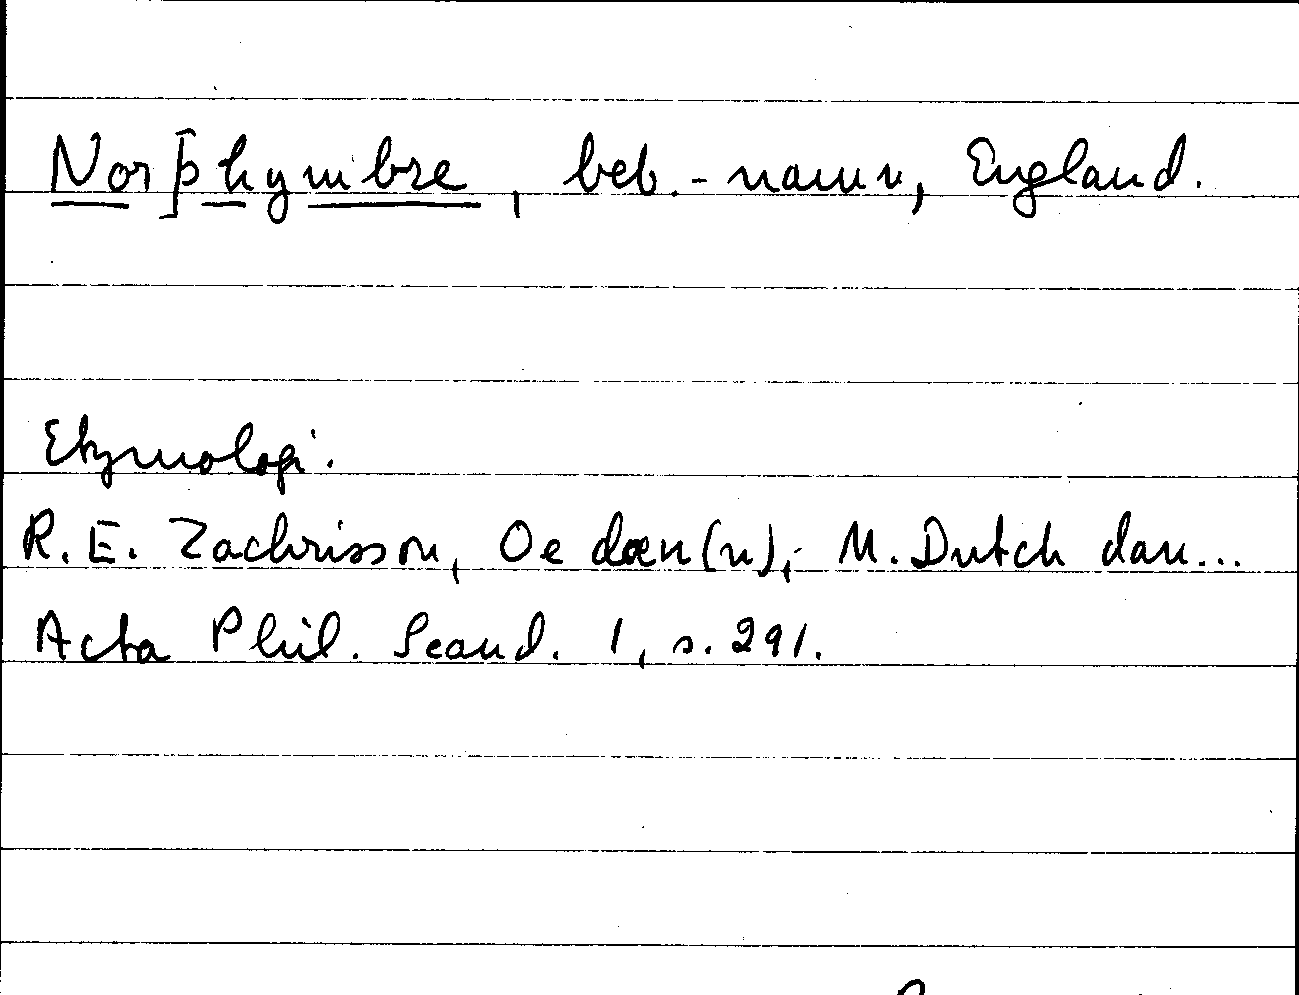 Norþhymbre, beb.-namn, England.
Etymologi.
R. E. Zachrisson, Oe dæn(n), M. Dutch dan...
Acta Phil. Scand. 1, s. 291.